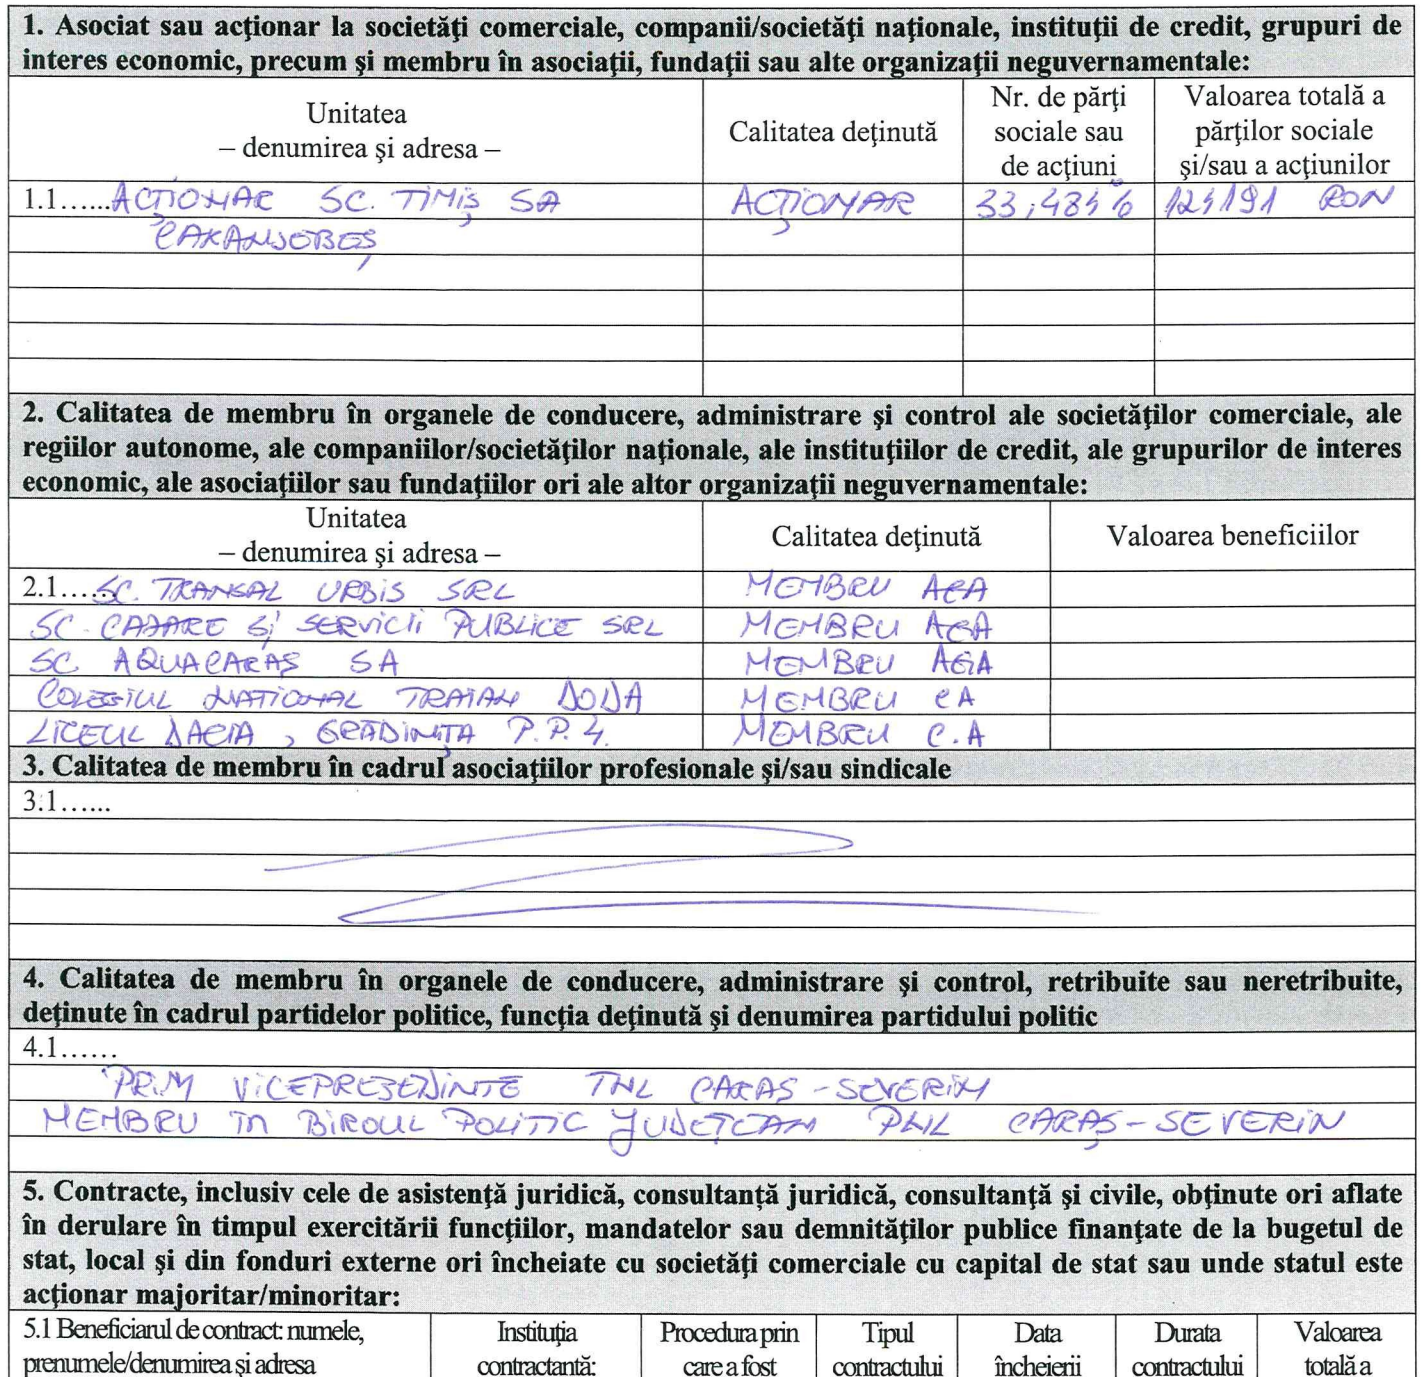 1. Asociat sau acţionar la societăţi comerciale, companii/societăţi naţionale, instituţii de credit, grupuri de
interes economic, precum şi membru în asociaţii, fundaţii sau alte organizaţii neguvernamentale:
Unitatea
– denumirea şi adresa –
Calitatea deţinută
Nr. de părţi
sociale sau
de acţiuni
Valoarea totală a
părţilor sociale
şi/sau a acţiunilor
1.1...... ACȚIONAR SC. TIMIȘ SA ACȚIONAR RON
CARANSEBEȘ
2. Calitatea de membru în organele de conducere, administrare şi control ale societăţilor comerciale, ale
regiilor autonome, ale companiilor/societăţilor naţionale, ale instituţiilor de credit, ale grupurilor de interes
economic, ale asociaţiilor sau fundaţiilor ori ale altor organizaţii neguvernamentale:
Unitatea
– denumirea şi adresa –
Calitatea deţinută
Valoarea beneficiilor
2.1...... SC. TRANSAL URBIS SRL MEMBRU AGA
SC. SI SERVICII PUBLICE SRL MEMBRU AGA
SC AQUACARAȘ SA MEMBRU AGA
COLEGIUL NATIONAL TRAIAN DODA MEMBRU CA
LICEUL DACIA, GRĂDINIȚA P.P.4. MEMBRU C.A
3. Calitatea de membru în cadrul asociaţiilor profesionale şi/sau sindicale
3.1......
4. Calitatea de membru în organele de conducere, administrare şi control, retribuite sau neretribuite,
deţinute în cadrul partidelor politice, funcţia deţinută şi denumirea partidului politic
4.1......
PRIM VICEPREȘEDINTE TNL CARAS-SEVERIN
MEMBRU în BIROUL POLITIC JUDEȚEAN PNL CARAȘ-SEVERIN
5. Contracte, inclusiv cele de asistenţă juridică, consultanţă juridică, consultanţă şi civile, obţinute ori aflate
în derulare în timpul exercitării funcţiilor, mandatelor sau demnităţilor publice finanţate de la bugetul de
stat, local şi din fonduri externe ori încheiate cu societăţi comerciale cu capital de stat sau unde statul este
acţionar majoritar/minoritar:
5.1 Beneficiarul de contract: numele,
prenumele/denumirea şi adresa
Instituţia
contractantă:
Procedura prin
care a fost
Tipul
contractului
Data
încheierii
Durata
contractului
Valoarea
totală a